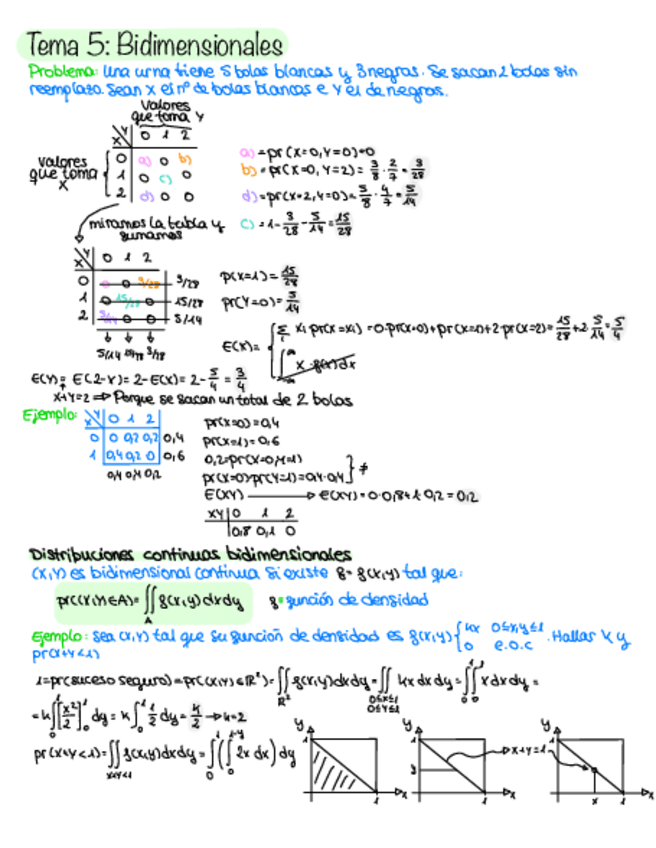 Tema 5: Bidimensionales
Problema: Una urna tiene 5 bolas blancas y 3 negras. Se sacan 2 bolas sin
reemplazo. Sean X el nº de bolas blancas e Y el de negras.
valores
que toma Y
X Y 0 1 2
valores
que toma
X
0 a) 0 b)
1 0 c) 0
2 d) 0 0
a) = pr(X=0, Y=0)=0
b) = pr(X=0, Y=2) = 3/8 · 2/7 = 3/28
d) = pr(X=2, Y=0) = 5/8 · 4/7 = 5/14
c) = 1 - 3/28 - 5/14 = 15/28
miramos la tabla y
sumamos
X Y 0 1 2
0 0 0 3/28 3/28
1 0 15/28 0 15/28
2 5/14 0 0 5/14
5/14 15/28 3/28
p(X=1) = 15/28
pr(Y=0) = 5/14
E(X) = { Σ xi pr(X=xi) = 0·pr(X=0) + pr(X=1) + 2·pr(X=2) = 15/28 + 2·5/14 = 5/4
∫ x·f(x)dx
E(Y) = E(2-X) = 2-E(X) = 2 - 5/4 = 3/4
X+Y=2 ⇒ Porque se sacan un total de 2 bolas
Ejemplo:
X Y 0 1 2
0 0 0,2 0,2 0,4
1 0,4 0,2 0 0,6
0,4 0,4 0,2
pr(X=0) = 0,4
pr(X=1) = 0,6
0,2 = pr(X=0, Y=1)
pr(X=0)·pr(Y=1) = 0,4·0,4 } ≠
E(XY) → E(XY) = 0·0,8 + 1·0,2 = 0,2
XY 0 1 2
0,8 0,1 0
Distribuciones continuas bidimensionales
(X,Y) es bidimensional continua si existe f = f(x,y) tal que:
pr((X,Y)∈A) = ∬ f(x,y) dxdy
A
f = función de densidad
Ejemplo: Sea (X,Y) tal que su función de densidad es f(x,y) { kx 0≤x,y≤1 . Hallar K y
0 e.o.c
pr(X+Y<1)
1 = pr(suceso seguro) = pr((X,Y)∈ℝ²) = ∬ f(x,y)dxdy = ∬ kx dx dy = ∫∫ x dx dy =
ℝ² 0≤x≤1 0 0
0≤y≤1
= k∫[x²/2] dy = k∫ 1/2 dy = k/2 → k=2
pr(X+Y<1) = ∬ f(x,y)dxdy = ∫(∫ 2x dx) dy
x+y<1 0 0
y 1 1 x
y 1 y 1 x
x+y=1
y 1 x 1 x